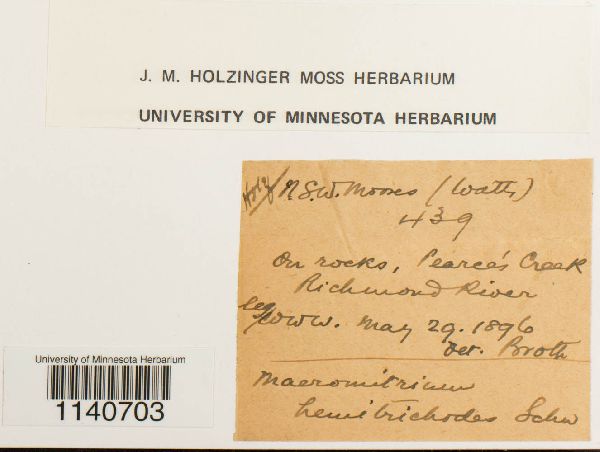 J. M. HOLZINGER MOSS HERBARIUM
UNIVERSITY OF MINNESOTA HERBARIUM
Holz N.S.W. Mosses (Watts)
439
On rocks, Pearce's Creek
Richmond River
leg WWW. May 29. 1896
Det. Broth
Macromitrium
hemitrichodes Schw
University of Minnesota Herbarium
1140703